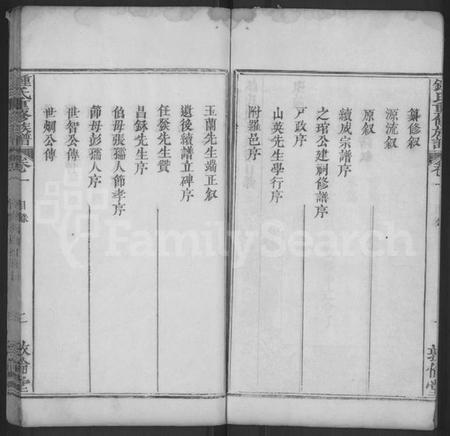 纂修叙
源流叙
原叙
續咸宗譜序
之琯公建祠修譜序
戸政序
山英先生學行序
附羅邑序
敦倫堂
玉蘭先生端正叙
遺後續譜立碑序
任發先生贊
昌錸先生序
伯母張孺人節孝序
節母彭孺人序
世智公傳
世炯公傳
鍾氏重修族譜
卷一
目錄
二
敦倫堂
FamilySearch